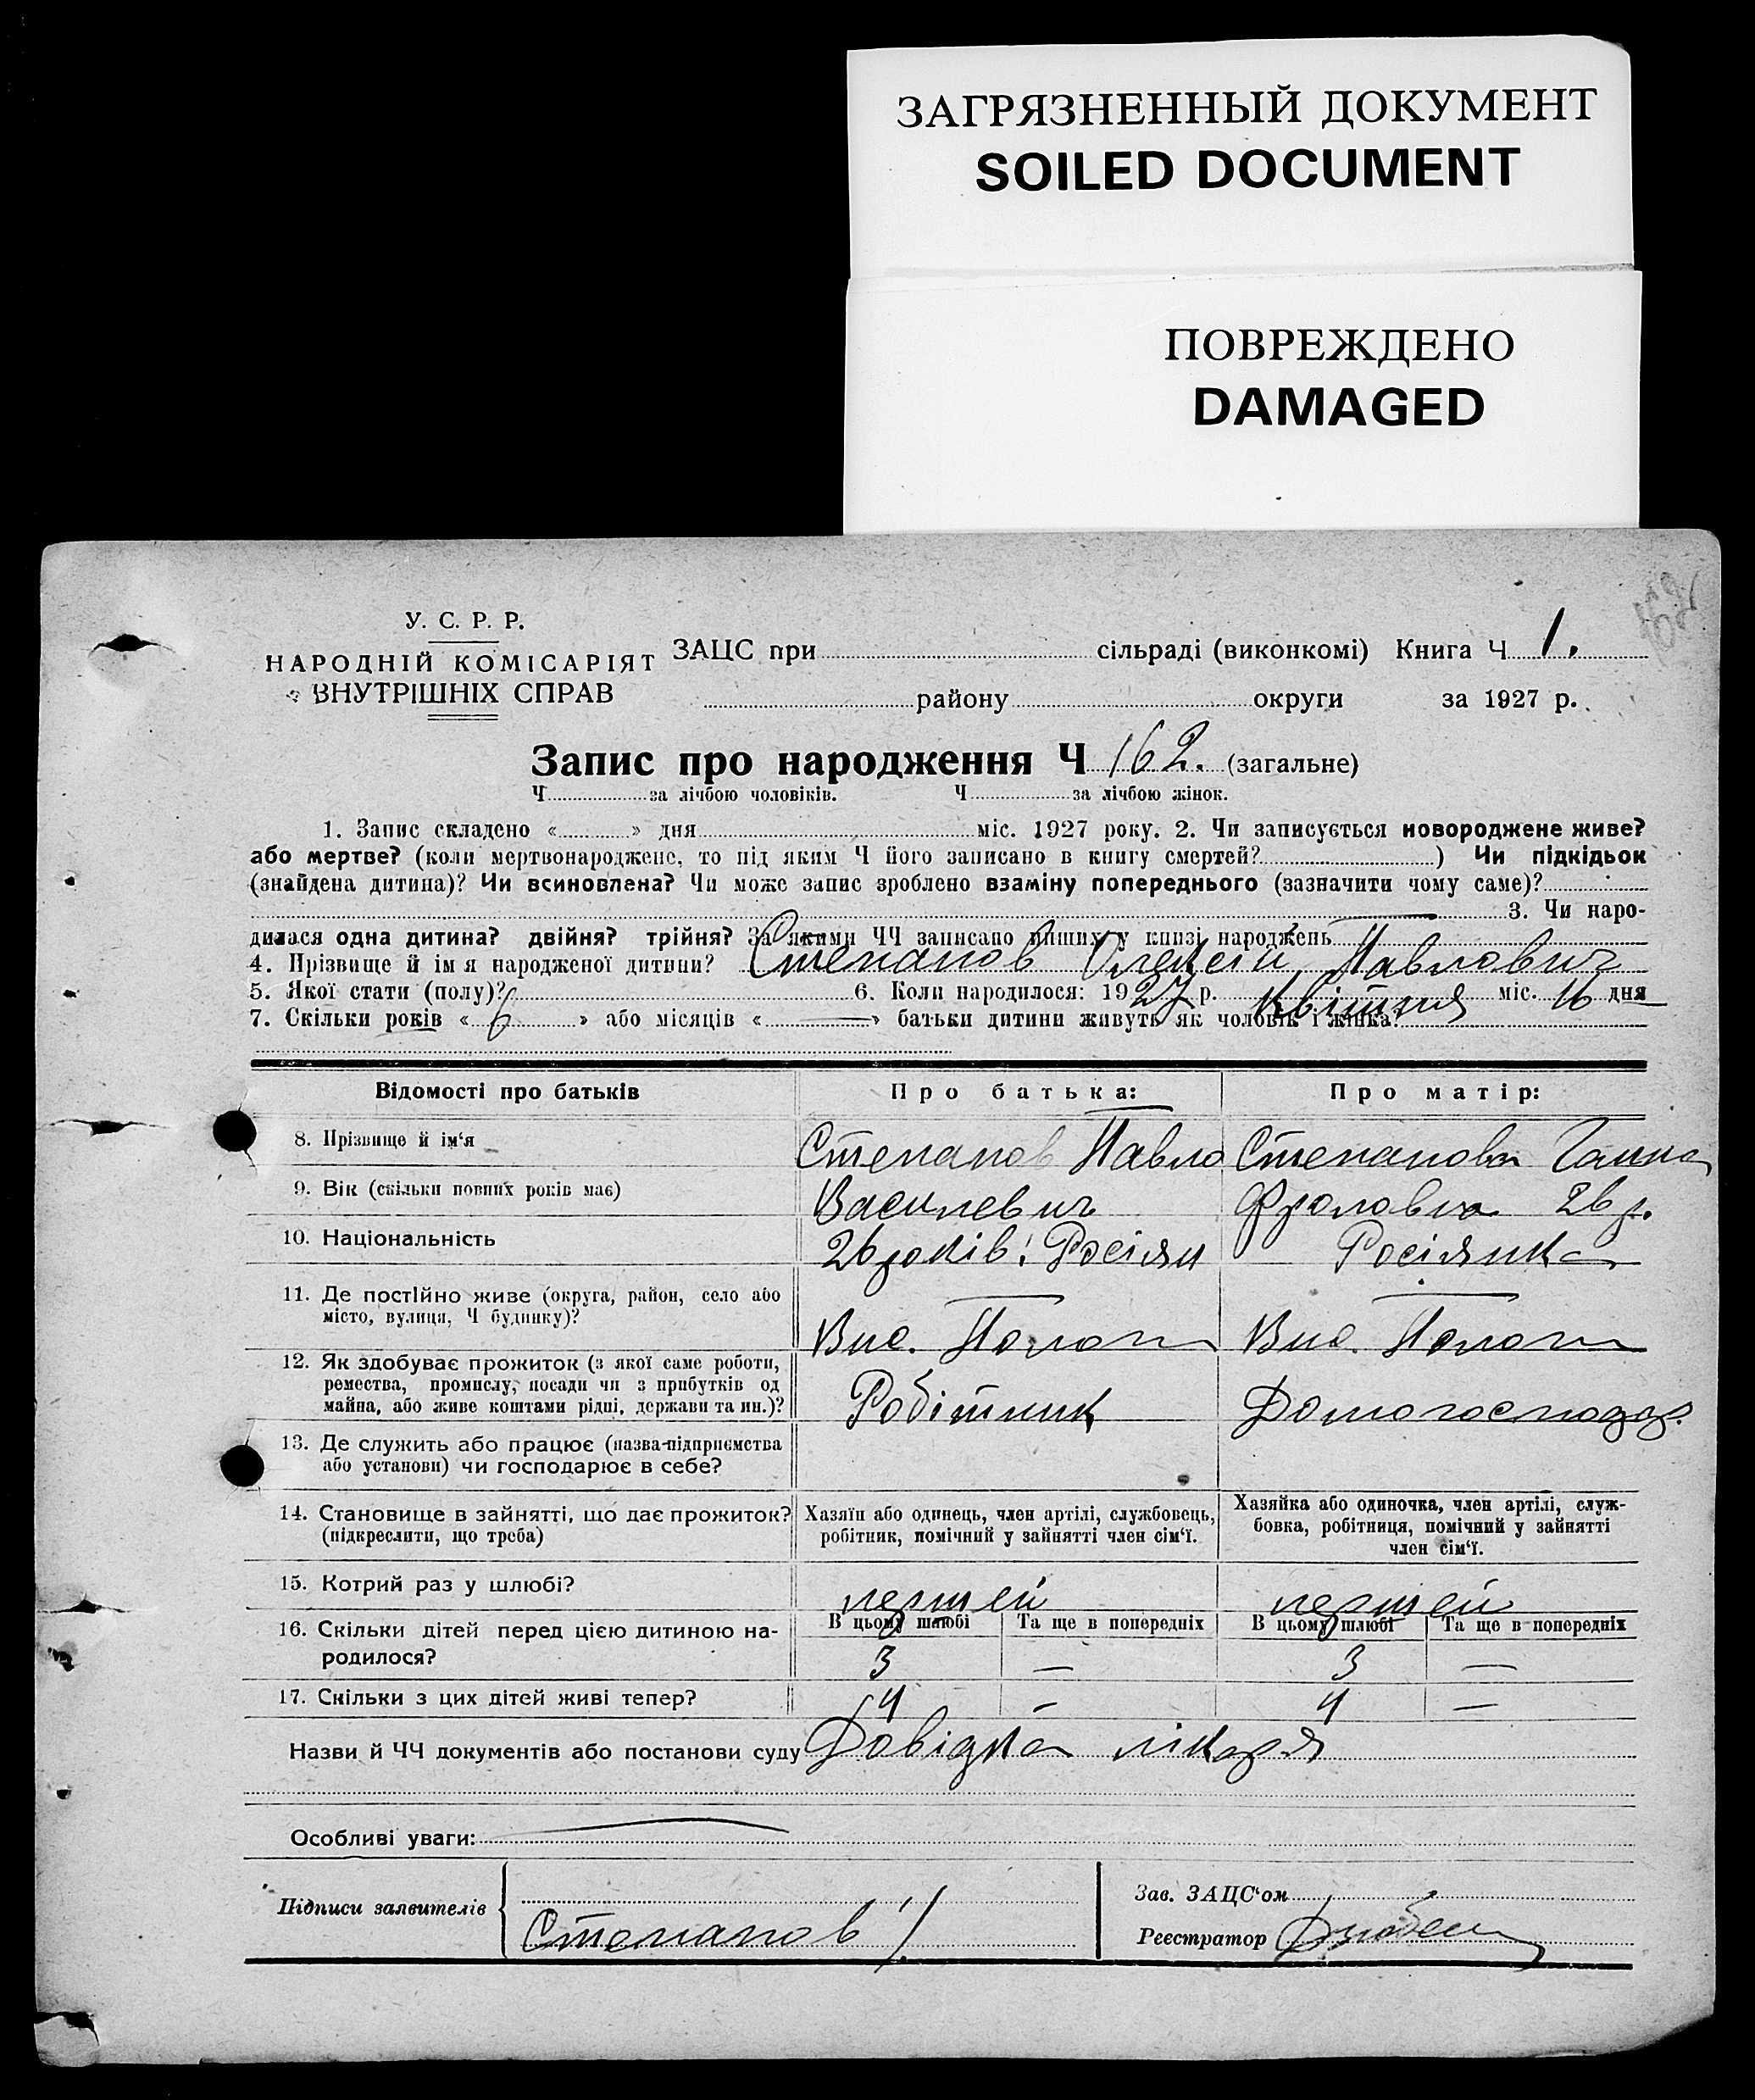 ЗАГРЯЗНЕННЫЙ ДОКУМЕНТ
SOILED DOCUMENT
ПОВРЕЖДЕНО
DAMAGED
У. С. Р. Р.
НАРОДНІЙ КОМІСАРІЯТ
ВНУТРІШНІХ СПРАВ
ЗАЦС при сільраді (виконкомі) Книга Ч 1.
району округи за 1927 р.
Запис про народження Ч 162. (загальне)
Ч за лічбою чоловіків. Ч за лічбою жінок.
1. Запис складено « » дня міс. 1927 року. 2. Чи записується новороджене живе?
або мертве? (коли мертвонароджене, то під яким Ч його записано в книгу смертей? ) Чи підкідьок
(знайдена дитина)? Чи всиновлена? Чи може запис зроблено взаміну попереднього (зазначити чому саме)?
3. Чи наро-
дилася одна дитина? двійня? трійня? За якими ЧЧ записано инших у книзі народжень
4. Прізвище й ім я народженої дитини? Степанов Олексій Павлович
5. Якої стати (полу)? 6. Коли народилося: 1927 р. Квітня міс. 16 дня
7. Скільки років « 6 » або місяців « — » батьки дитини живуть як чоловік і жінка?
Відомості про батьків Про батька: Про матір:
8. Прізвище й ім‘я Степанов Павло Степанова Ганна
9. Вік (скільки повних років має) Василевич Фроловна 26 р.
10. Національність 26 років. Росіян Росіянка
11. Де постійно живе (округа, район, село або
місто, вулиця, Ч будинку)? Вис. Пологи Вис. Пологи
12. Як здобуває прожиток (з якої саме роботи,
ремества, промислу, посади чи з прибутків од
майна, або живе коштами рідні, держави та ин.)? Робітник Домогосподар.
13. Де служить або працює (назва підприємства
або установи) чи господарює в себе?
14. Становище в зайнятті, що дає прожиток?
(підкреслити, що треба)
Хазяїн або одинець, член артілі, службовець,
робітник, помічний у зайнятті член сім‘ї.
Хазяйка або одиночка, член артілі, служ-
бовка, робітниця, помічний у зайнятті
член сім‘ї.
15. Котрий раз у шлюбі? першей першей
16. Скільки дітей перед цією дитиною на-
родилося?
В цьому шлюбі Та ще в попередніх В цьому шлюбі Та ще в попередніх
3 — 3 —
17. Скільки з цих дітей живі тепер? 4 — 4 —
Назви й ЧЧ документів або постанови суду Довідка лікаря
Особливі уваги:
Підписи заявителів Степанов
Зав. ЗАЦС‘ом
Реєстратор